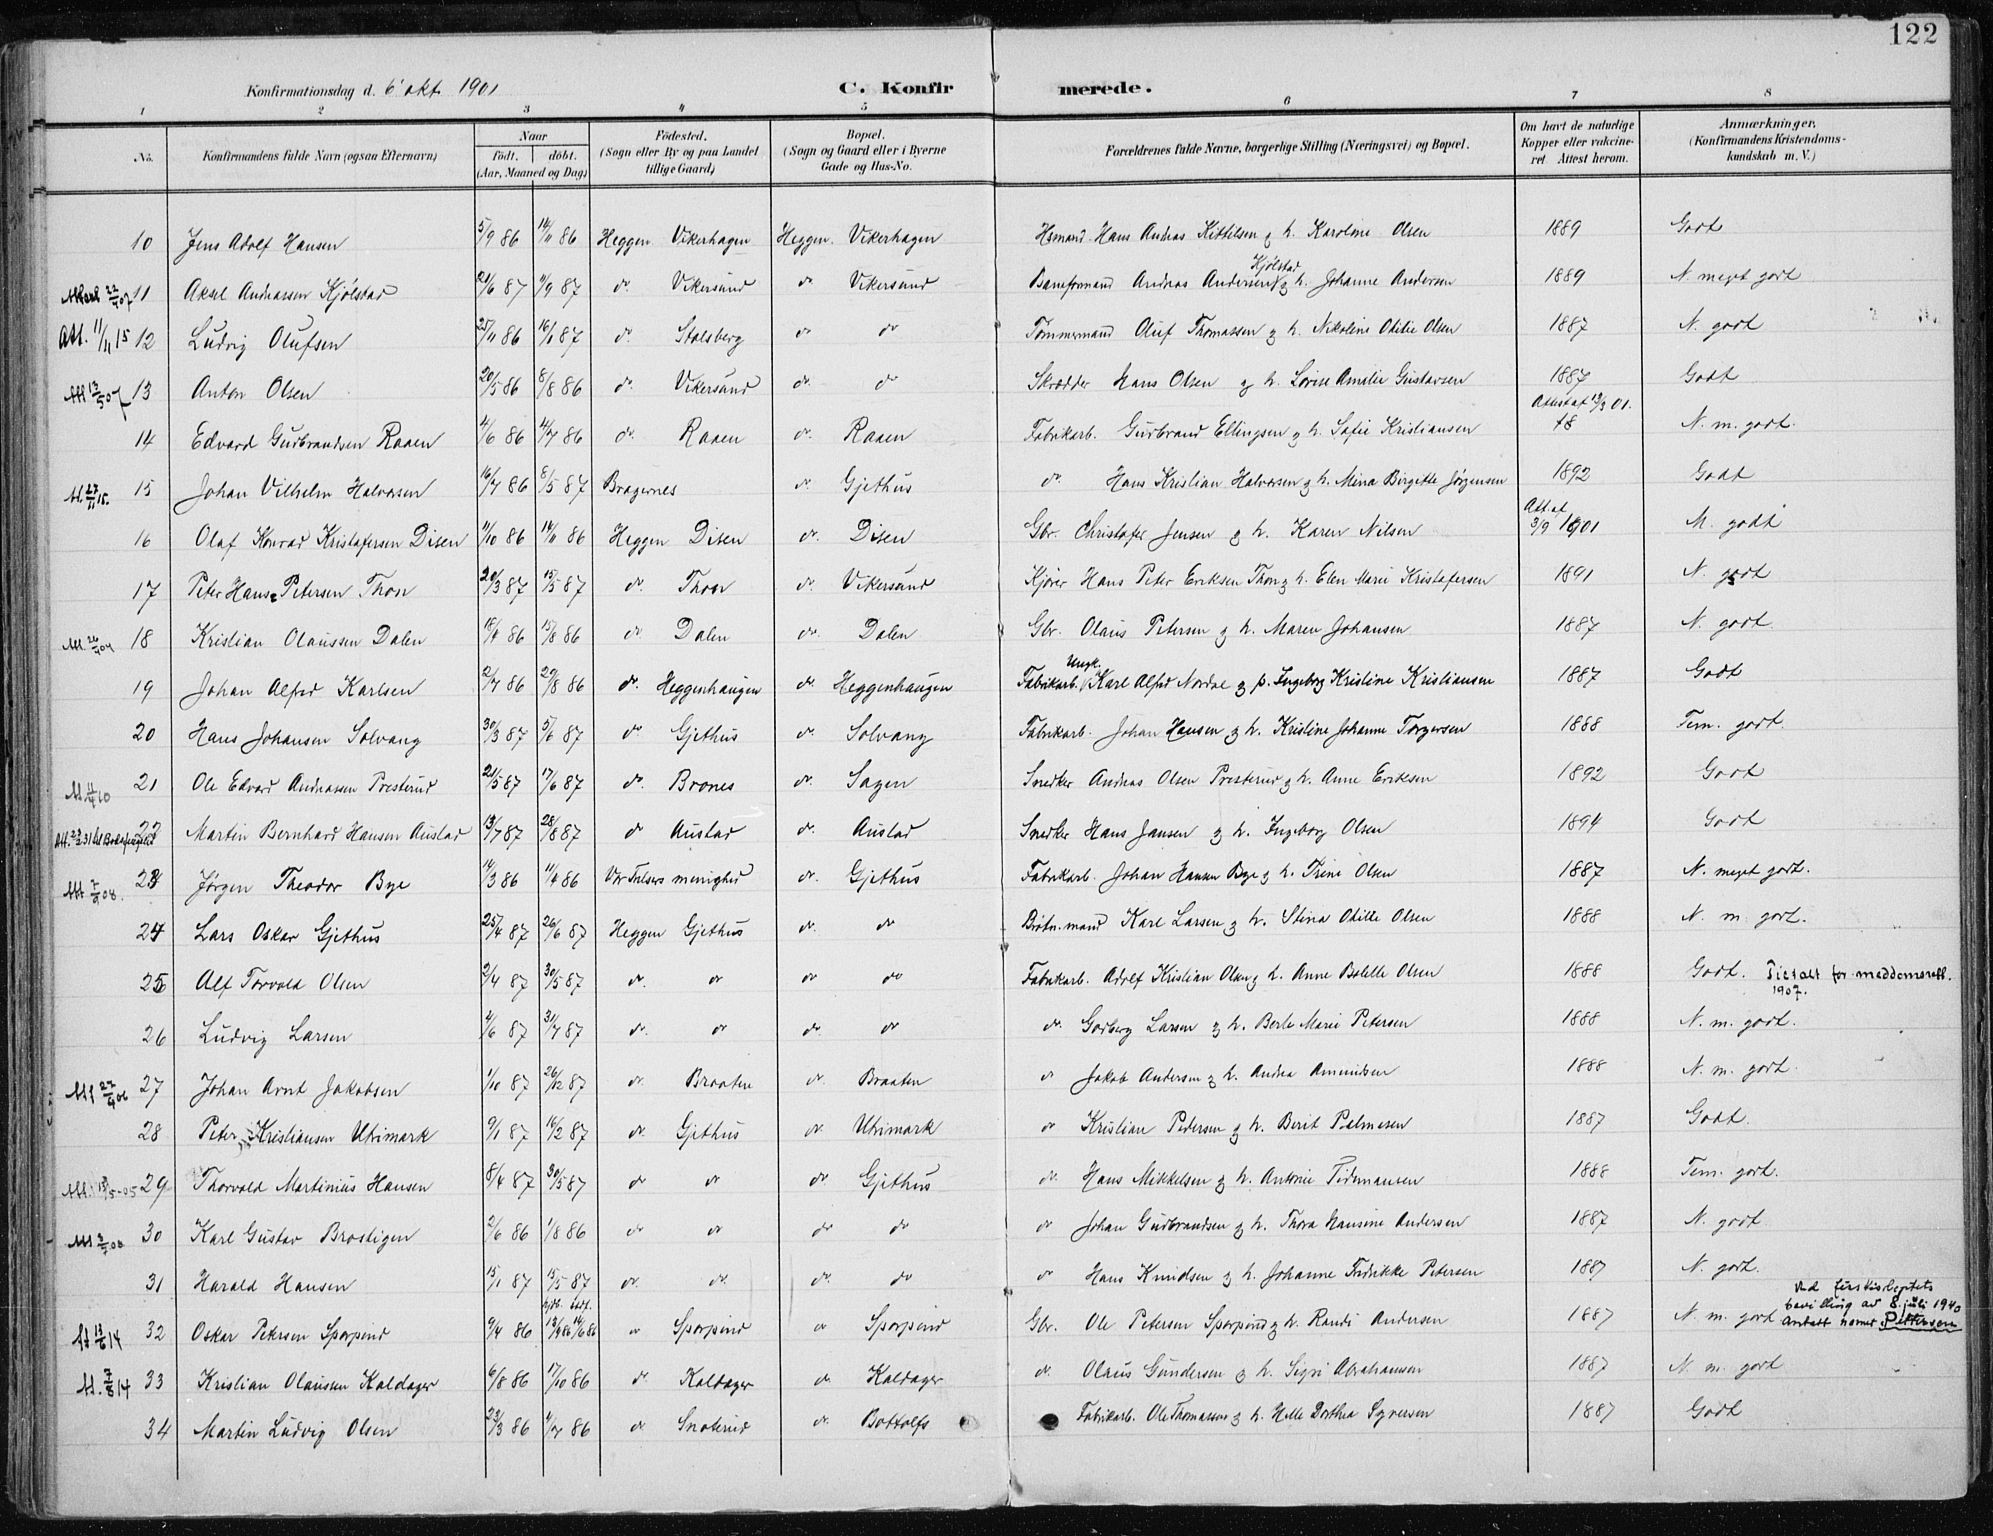 122
Konfirmationsdag d. 6' okt. 1901 C. Konfirmerede.
1 2 3 4 5 6 7 8
No. Konfirmandens fulde Navn (ogsaa Efternavn) Naar født. døbt. (Aar, Maaned og Dag) Fødested. (Sogn eller By og paa Landet tillige Gaard) Bopæl. (Sogn og Gaard eller i Byerne Gade og Hus-No. Forældrenes fulde Navne, borgerlige Stilling (Næringsvei) og Bopæl. Om havt de naturlige Kopper eller vakcineret Attest herom. Anmærkninger, (Konfirmandens Kristendomskundskab m. V.)
10 Jens Adolf Hansen 5/9 86 14/11 86 Heggen Vikerhagen Heggen. Vikerhagen Hsmand. Hans Andreas Kittelsen & h. Karoline Olsen 1889 Godt
11 Aksel Andreassen Kjølstad 21/6 87 11/9 87 do. Vikersund do Vikersund Baneformand Andreas Andersen Kjølstad & h. Johanne Andersen 1889 N. meget godt
Att. 11/11 15 12 Ludvig Olufsen 25/11 86 16/1 87 do. Stalsberg do do Tømmermand Oluf Thomassen & h. Nikoline Otilie Olsen 1887 N. godt
Att 13/5 07 13 Anton Olsen 20/5 86 8/8 86 do. Vikersund do. do Skrædder Hans Olsen & h. Lovise Amalie Gustavsen 1887 Godt
14 Edvard Gudbrandsen Raaen 4/6 86 4/7 86 do. Raaen do. Raaen Fabrikarb. Gudbrand Ellingsen & h. Sofie Kristiansen Attest af 12/3 01. N. m. godt.
15 Johan Vilhelm Halvorsen 16/7 86 8/5 87 Bragernes do. Gjethus do. Hans Kristian Halvorsen & h. Mina Birgitte Jørgensen 1892 Godt
16 Olaf Konrad Kristofersen Disen 11/10 86 14/11 86 Heggen Disen do. Disen Gbr. Christofer Jensen & h. Karen Nilsen Att. af 3/9 1901 M. godt
17 Peter Hans Petersen Thon 20/3 87 15/5 87 do. Thon do Vikersund Kjører Hans Peter Eriksen Thon & h. Elen Marie Kristofersen 1891 N. godt
18 Kristian Olaussen Dalen 18/4 86 15/8 86 do Dalen do. Dalen Gbr. Olaus Petersen & h. Maren Johansen 1887 N. godt.
19 Johan Alfred Karlsen 2/7 86 29/8 86 do. Heggenhaugen do. Heggenhaugen Fabrikarb. Ungk. Karl Alfred Nordal & p. Ingeborg Kristine Kristiansen 1887 Godt
20 Hans Johansen Solvang 30/3 87 5/6 87 do Gjethus do. Solvang Fabrikarb. Johan Hansen & h. Kristine Johanne Torgersen 1888 Tem. godt.
21 Ole Edvard Andreassen Presterud 21/5 87 17/6 87 do. Brones do. Sagen Snedker Andreas Olsen Presterud & h. Anne Eriksen 1892 Godt
22 Martin Bernhard Hansen Austad 13/7 87 28/8 87 do Austad do. Austad Snedker Hans Jansen & h. Ingeborg Olsen 1894 Godt
23 Jørgen Theodor Bye 14/3 86 11/4 86 Vor Frelsers menighed do. Gjethus Fabrikarb. Johan Hansen Bye & h. Trine Olsen 1887 N. meget godt.
24 Lars Oskar Gjethus 25/4 87 26/6 87 Heggen Gjethus do. do Karl Larsen & h. Stina Otilie Olsen 1888 N. m. godt.
25 Alf Torvald Olsen 2/4 87 30/5 87 do. do do do Fabrikarb. Adolf Kristian Olsen & h. Anne Bolette Olsen 1888 Godt. for meddomsrett. 1907.
26 Ludvig Larsen 4/6 87 31/7 87 do. do do. do do. Larsen & h. Berte Marie Petersen 1888 N. m. godt.
27 Johan Arnt Jakobsen 1/10 87 26/12 87 do. Braaten do. Braaten do Jakob Andersen & h. Andrea Amundsen 1888 N. m. godt.
28 Peter Kristiansen Utrimark 9/1 87 16/2 87 do. Gjethus do. Utrimark do Kristian Pedersen & h. Berit Palmesen 1887 Godt.
29 Thorvald Martinius Hansen 8/4 87 30/5 87 do do do Gjethus do. Hans Mikkelsen & h. Antonie Tidemansen 1888 Tem. godt.
30 Karl Gustav Brostigen 2/6 86 1/8 86 do do do do do Johan Gudbrandsen & h. Thora Hansine Andersen 1887 N. godt.
31 Harald Hansen 15/1 87 15/5 87 do. do. do. do do Hans Knudsen & h. Johanne Fredrikke Petersen 1887 N. godt.
32 Oskar Petersen Sparpind 9/4 86 hjdb. stadf. 13/4 86 14/6 86 do Sparpind do Sparpind Gbr. Ole Petersen Sparpind & h. Randi Andersen 1887 N. m. godt Ved bevilling av 8. juli 1940 antatt navnet Pettersen
33 Kristian Olausen Kaldager 6/8 86 17/10 86 do Kaldager do Kaldager do. Olaus Gundersen & h. Sigri Abrahamsen 1887 N. m. godt
34 Martin Ludvig Olsen 22/3 86 4/7 86 do Snoterud do. Bottolfs Fabrikarb. Ole Thomassen & h. Helle Dorthea Syversen 1887 Godt